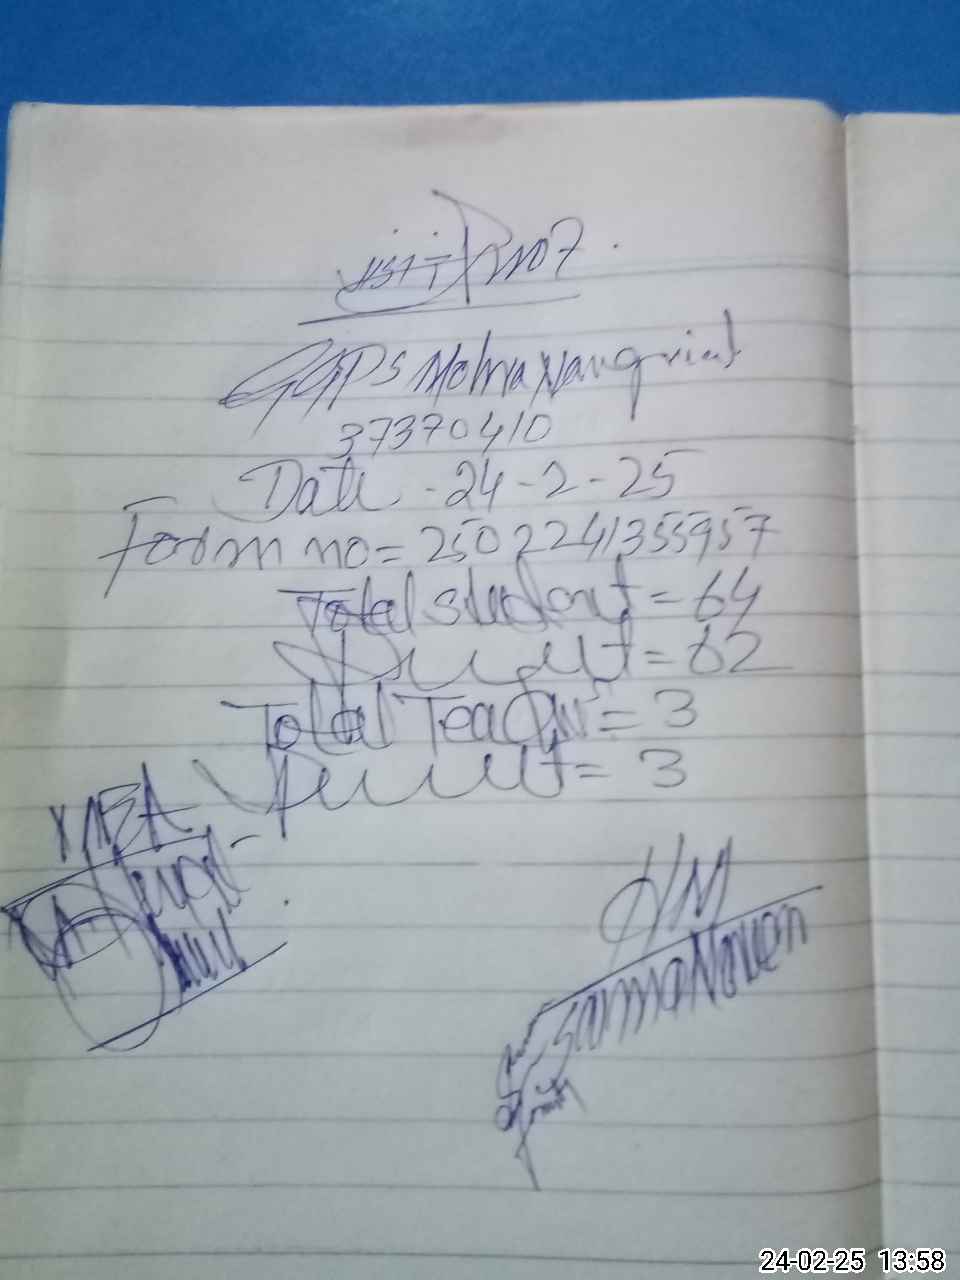 visit no 7
GGPS Mohra Nangrial
37370410
Date - 24-2-25
Form no = 2502241355957
Total student = 64
Present = 62
Total Teacher = 3
Present = 3
MEA
H/M
Sanma Noreen
24-02-25 13:58